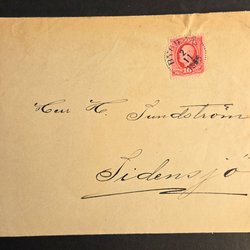 2
11
10
Herr H. Sundström
Sidensjö